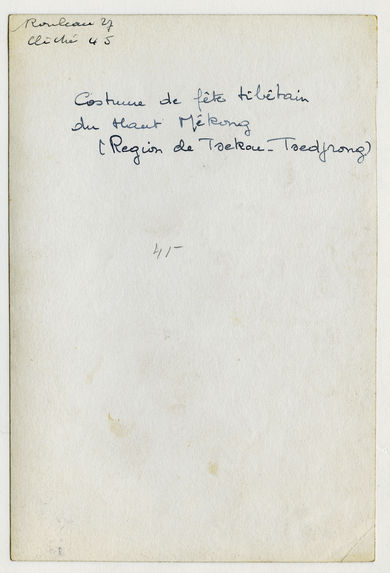 Rouleau 27
Cliché 45
Costume de fête tibétain
du Haut Mékong
(Region de Tsekou - Tsedjrong)
45